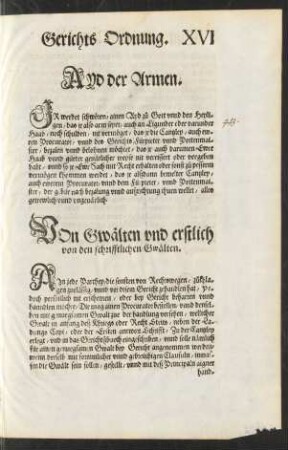 Gerichts Ordnung. XVI
Ayd der Armen.
IR werdet schwören, einen Ayd zu Gott vnnd den Heyli-
gen, das jr also arm seyet, auch an Ligender oder varunder
Haab, noch schulden, nit vermöget, das jr die Cantzley, auch ew-
ren Procurator, vnnd den Gerichts Fürpieter vnnd Pottenmai-
ster, bezalen vnnd belohnen möchtet, das jr auch darumen Ewer
Haab vnnd güeter geuärlicher weyse nit vereussert oder vergeben
habt, vnnd so jr Ewr Sach mit Recht erhalten oder sonst zu besserm
vermögen khommen werdet, das jr alßdann bemelter Cantzley,
auch ewerm Procurator vnnd dem Fürpieter, vnnd Pottenmai-
ster, der gebür nach bezalung vnnd außrichtung thuen wellet, alles
getrewlich vnnd vngeuärlich.
VOn Gwälten vnd erstlich
von den schrifftlichen Gwälten.
AIn jede Parthey die sonsten von Rechtswegen,
zugelässig, vnnd vor disem Gericht zehandlen hat,
doch persönlich nit erscheinen, oder bey Gericht beharren vnnd
handlen möchte, Die mag ainen Procurator bestellen, vnnd demsel-
ben mit genuegsamen Gwalt zur der handlung versehen, welcher
Gwalt im anfang deß Kriegs oder Recht Stritts, neben der La-
dungs Copi, oder der Ersten gerichts Schrifft, In der Cantzley
erlegt, vnd in das Gerichtsbuech eingeschriben, vnnd solle nämlich
für ainen genuegsamen Gwalt bey Gericht angenommen werden,
wenn derselb mit formlicher vnnd gebreuchigen Clausuln,
die Gwält sein sollen, gestelt, vnnd mit deß Principals aigner
hand-